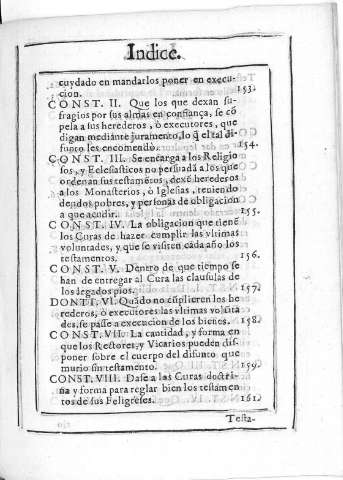 Indice.
cuydado en mandarlos poner en execu-
cion. 153.
CONST. II. Que los que dexan su-
fragios por sus almas en confiança, se cõ
pela a sus herederos, ò executores, que
digan mediante juramento, lo q̃ el tal di-
funto les encomendò. 154.
CONST. III. Se encarga a los Religio
sos, y Eclesiasticos no persuadã a los que
ordenan sus testamẽtos, dexẽ herederos
a los Monasterios, ò Iglesias, teniendo
deudos pobres, y personas de obligacion
a que acudir. 155.
CONST. IV. La obligacion que tienẽ
los Curas de hazer cumplir las vltimas
voluntades, y que se visiten cada año los
testamentos. 156.
CONST. V. Dentro de que tiempo se
han de entregar al Cura las clausulas de
los legados pios. 157.
DONTT. VI. Quãdo no cũplieren los he
rederos, ò executores las vltimas volũta
des, se passe a execucion de los bienes. 158.
CONST. VII. La cantidad, y forma en
que los Rectores, y Vicarios pueden dis-
poner sobre el cuerpo del difunto que
murio sin testamento. 159.
CONST. VIII. Dase a los Curas doctri-
ña y forma para reglar bien los testamen
tos de sus Feligreses. 161.
Testa-